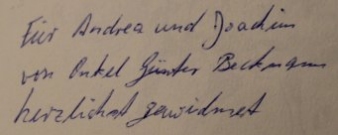 Für Andrea und Joachim
von Onkel Günter Beckmann
herzlichst gewidmet